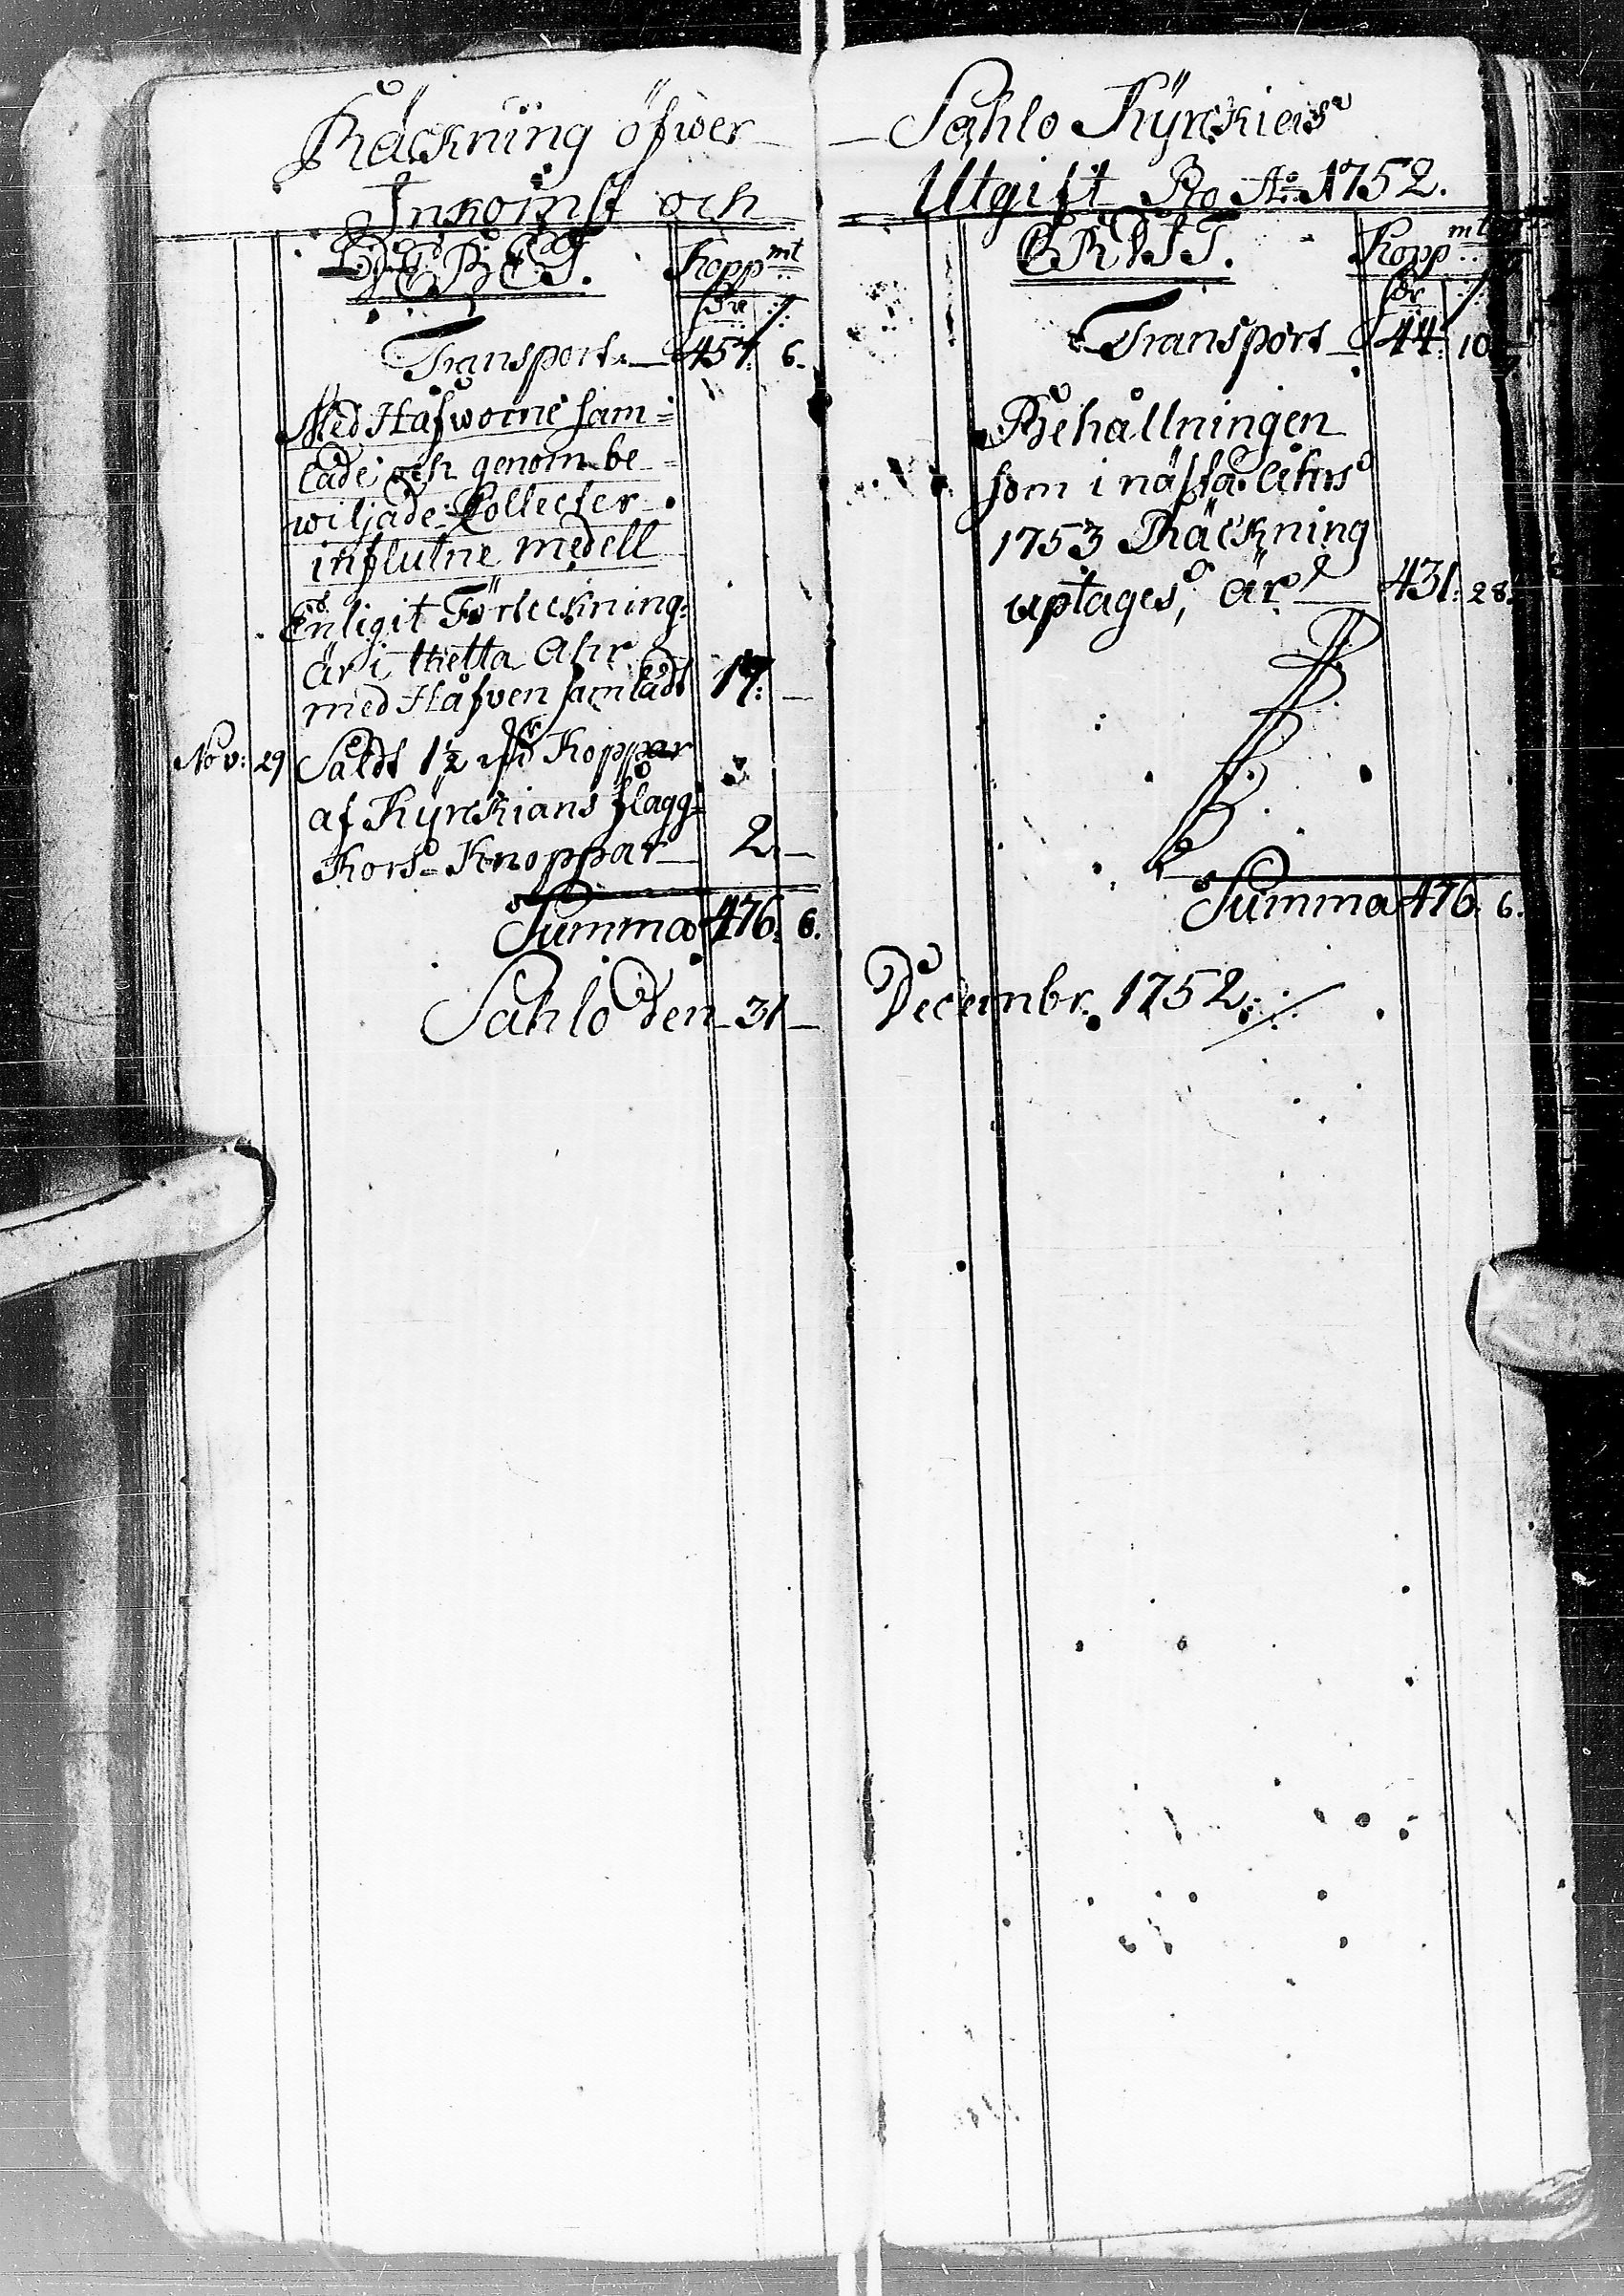 Räckning öfwer
Inkomst och
DEBET. Kopp mt
Transport — 457: 6.
Med Håfwome sam=
lade och genom be=
wiljade Collecter
influtne medell
Enligit Förteckning
är i thetta Åhr
med Håfven samladt 17: —
Nov: 29 Såldt 1½ Koppar
af Kyrckians flagg=
Kors=Knoppar — 2. —
Summa 476. 6.
Sahlo den — 31 —
Sahlo Kyrckias
Utgift Pro Ao 1752.
CREDIT. Kopp mt
Transport — 44: 10
Behållningen
som i nästa Åhrs
1753 Räckning
uptages, är — 431: 28.
Summa 476. 6.
Decembr. 1752.